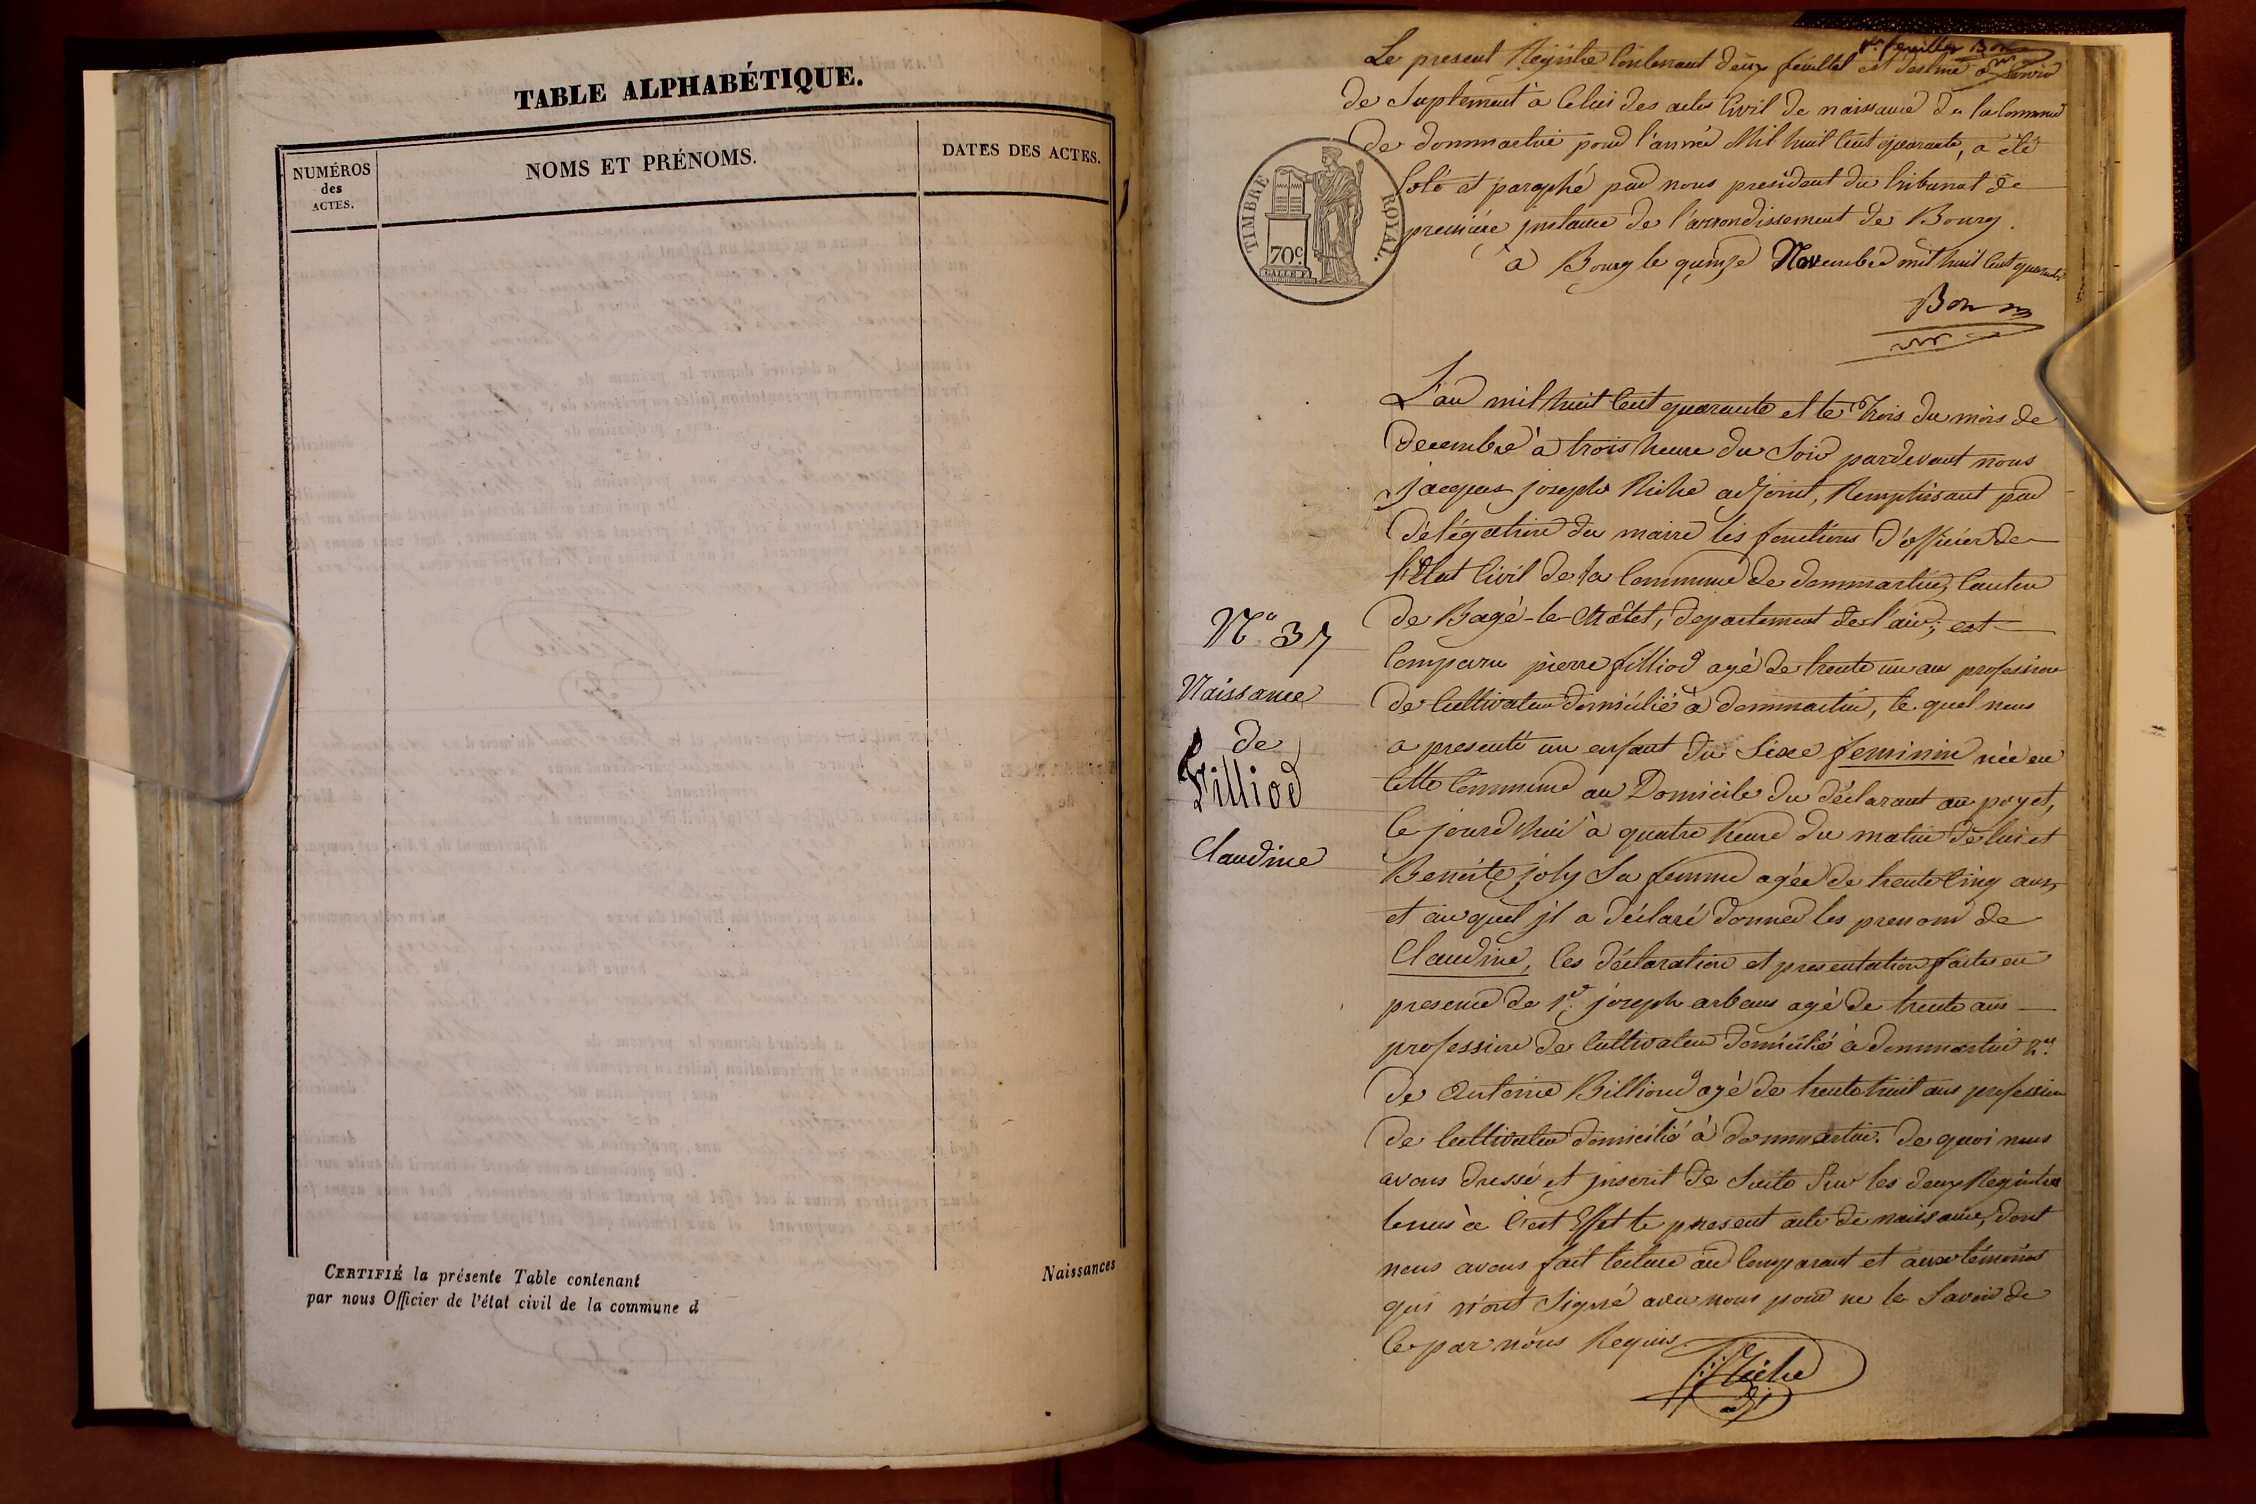 TABLE ALPHABÉTIQUE.
NUMÉROS
des
ACTES.
NOMS ET PRÉNOMS.
DATES DES ACTES.
CERTIFIÉ la présente Table contenant
par nous Officier de l'état civil de la commune d
Naissances
1er feuillet Bon
Le present Régistre Contenant deux feuillet est destiné a Servir
de Suplement à Celui des actes Civil de naissance de la Commune
de dommartin pour l'année Mil huit Cent quarante, a été
Coté et paraphé par nous president du tribunal de
première jnstance de l'arrondissement de Bourg.
à Bourg le quinze Novembre mil huit Cent quarante
Bon
TIMBRE ROYAL.
70c.
L'an mil huit Cent quarante et le Trois du mois de
Decembre à trois heure du Soir pardevant nous
jacques joseph Riche adjoint, Remplissant par
Délégation du maire les fonctions d'officier de
l'Etat Civil de la Commune de dommartin, Canton
de Bagé-le-Châtel, departement de l'ain, est
Comparu pierre filliod agé de trente un an profession
de Cultivateur domicilié à dommartin, le quel nous
a presenté un enfant du Sixe feminin née en
Cette Commune au Domicile du déclarant au poyet,
Ce jourd'hui à quatre heure du matin de lui et
Benoite joly Sa femme agée de trente Cinq ans,
et auquel jl a déclaré donner les prenom de
Claudine, Ces déclaration et presentation faites en
presence de 1er joseph arbans agé de trente ans
profession de Cultivateur domicilié à dommartin 2me
de Antoine Billioud agé de trente huit ans profession
de Cultivateur domicilié à dommartin. de quoi nous
avons dressé et jnscrit de Suite Sur les deux Registres
tenus à C'est Effet le present acte de naissance, dont
nous avons fait lecture au Comparant et aux témoins
qui n'ont Signé avec nous pour ne le Savoir de
Ce par nous Requis
Riche
adj
N° 37
Naissance
de
Filliod
Claudine